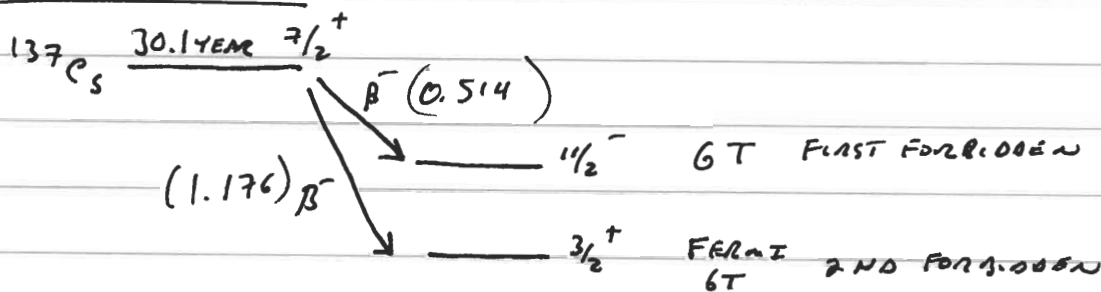 137Cs 30.1 YEAR 7/2+
β- (0.514)
11/2- GT FIRST FORBIDDEN
(1.176) β-
3/2+ FERMI 2ND FORBIDDEN
GT